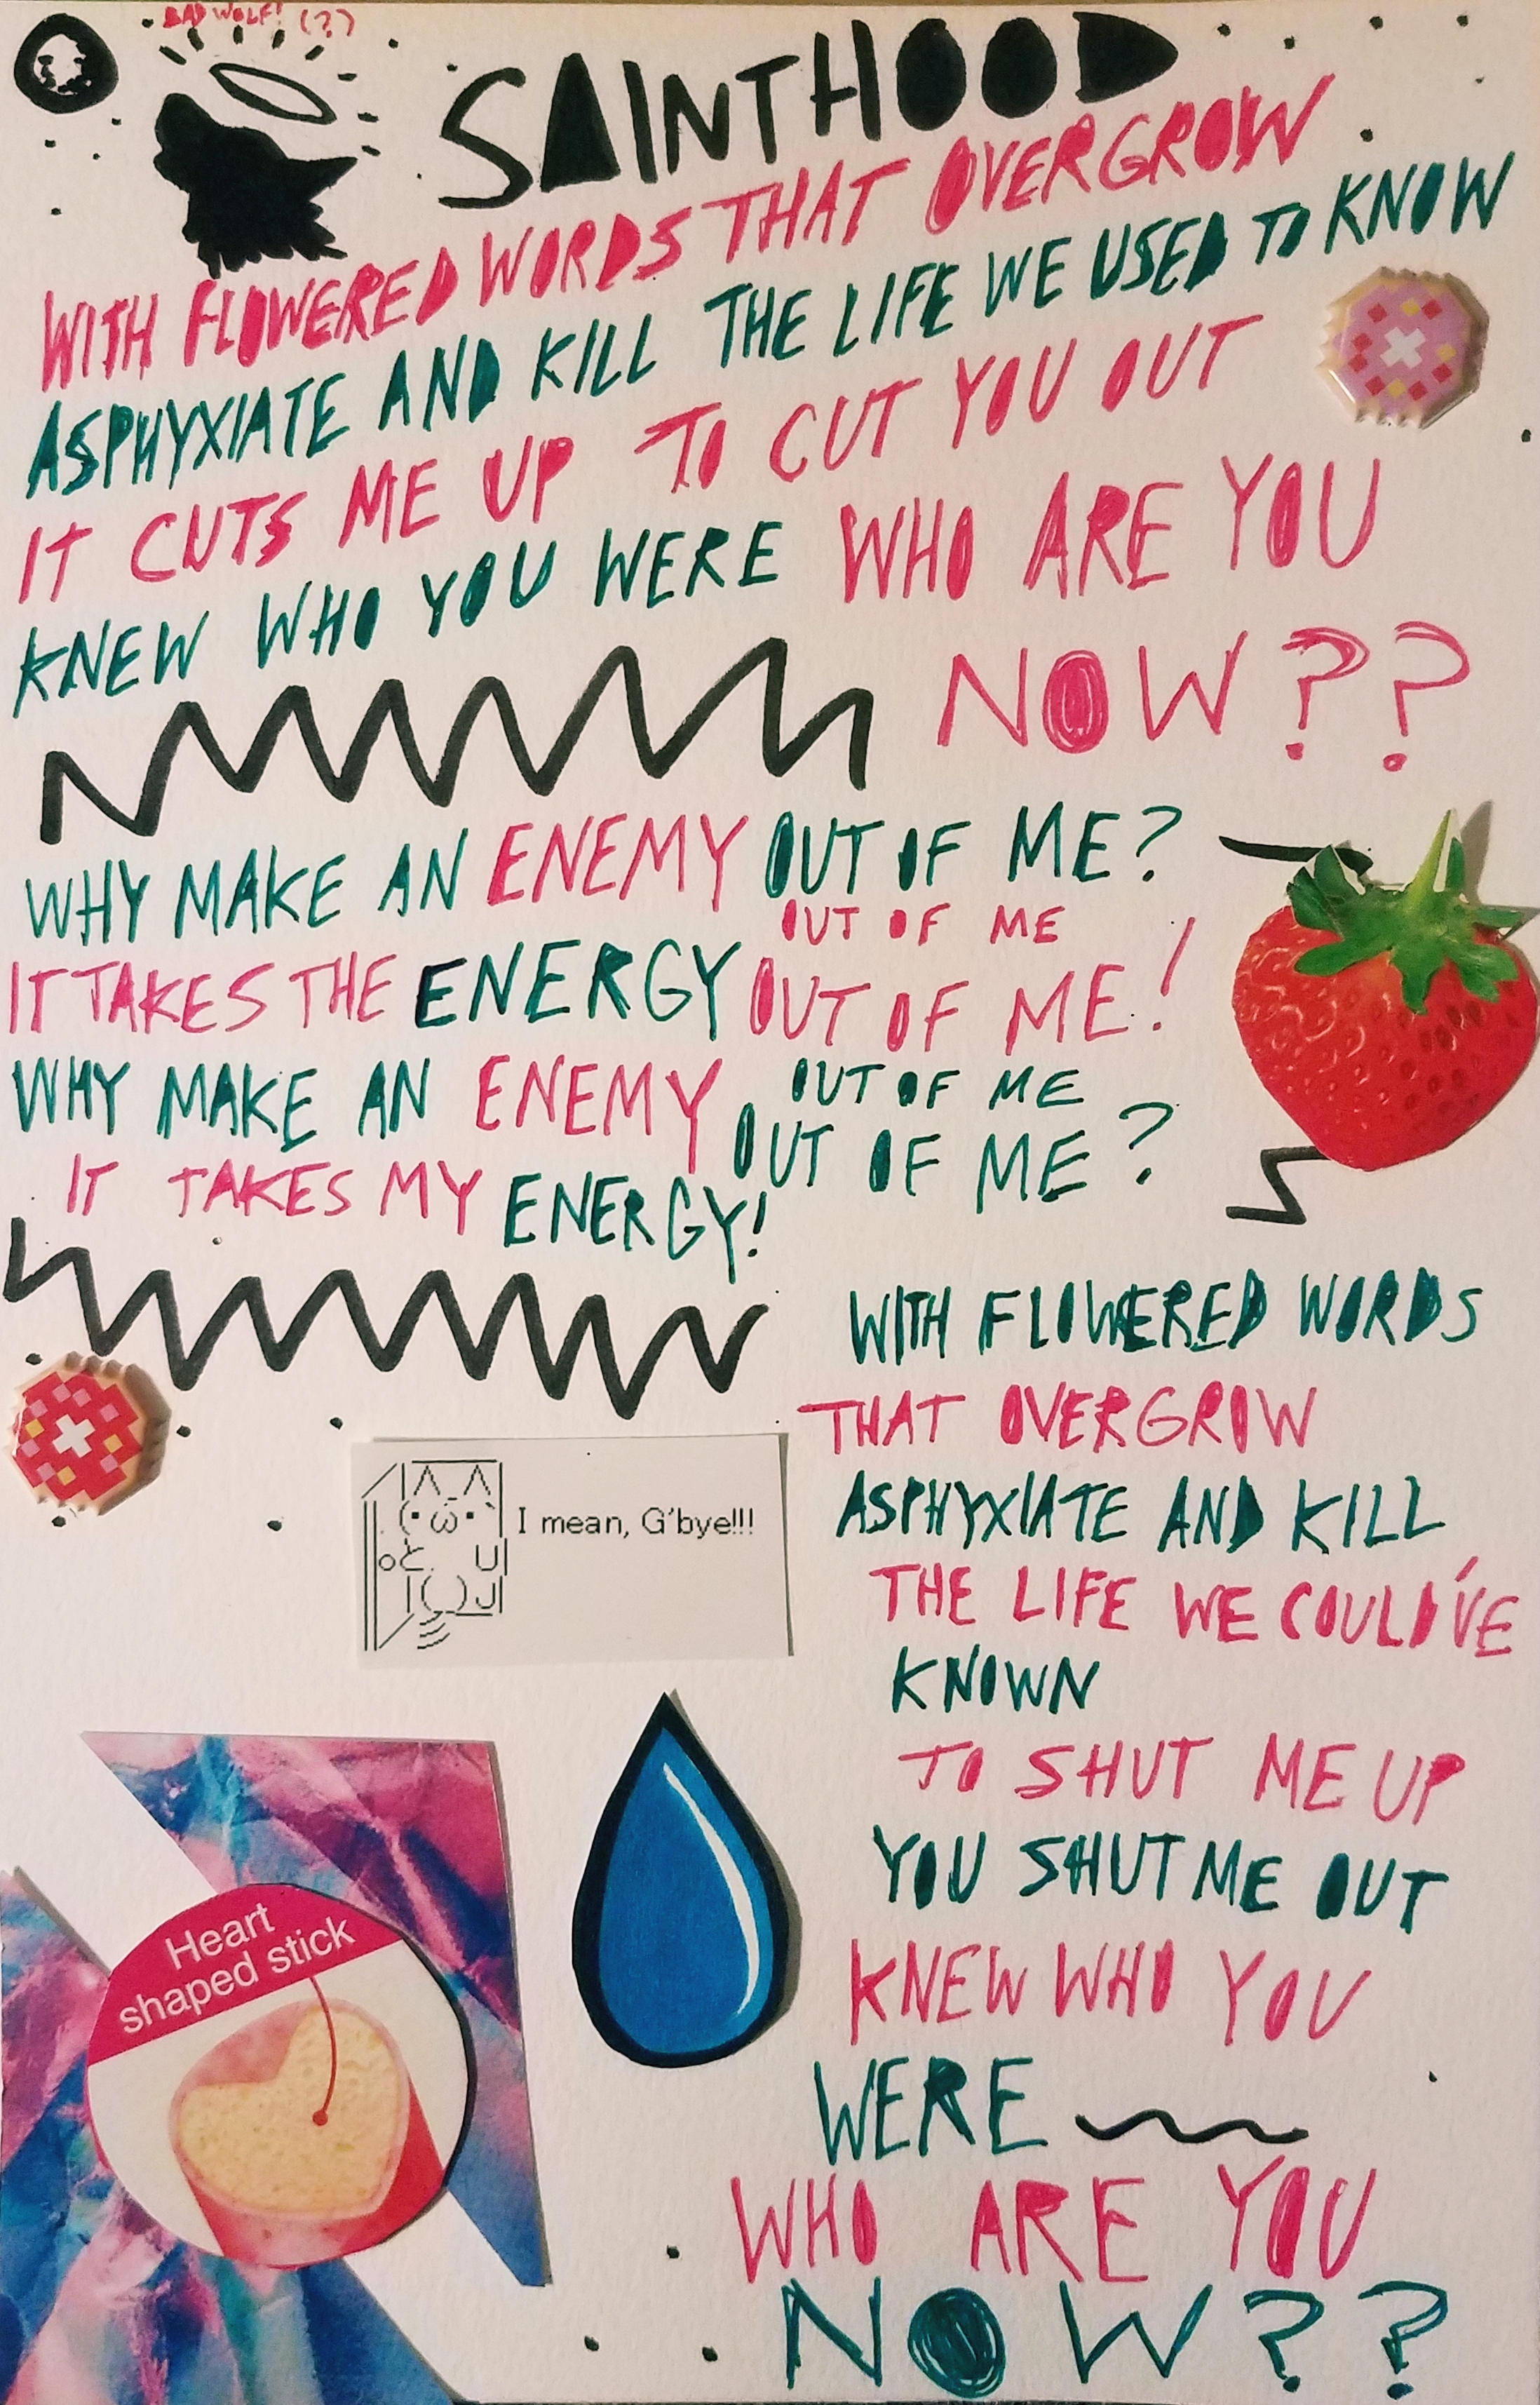 BAD WOLF! (?)
SAINTHOOD
WITH FLOWERED WORDS THAT OVERGROW
ASPHYXIATE AND KILL THE LIFE WE USED TO KNOW
IT CUTS ME UP TO CUT YOU OUT
KNEW WHO YOU WERE WHO ARE YOU
NOW??
WHY MAKE AN ENEMY OUT OF ME?
OUT OF ME
IT TAKES THE ENERGY OUT OF ME!
OUT OF ME
WHY MAKE AN ENEMY OUT OF ME?
IT TAKES MY ENERGY!
WITH FLOWERED WORDS
THAT OVERGROW
ASPHYXIATE AND KILL
THE LIFE WE COULD'VE
KNOWN
TO SHUT ME UP
YOU SHUT ME OUT
KNEW WHO YOU
WERE
WHO ARE YOU
NOW??
I mean, G'bye!!!
Heart
shaped stick